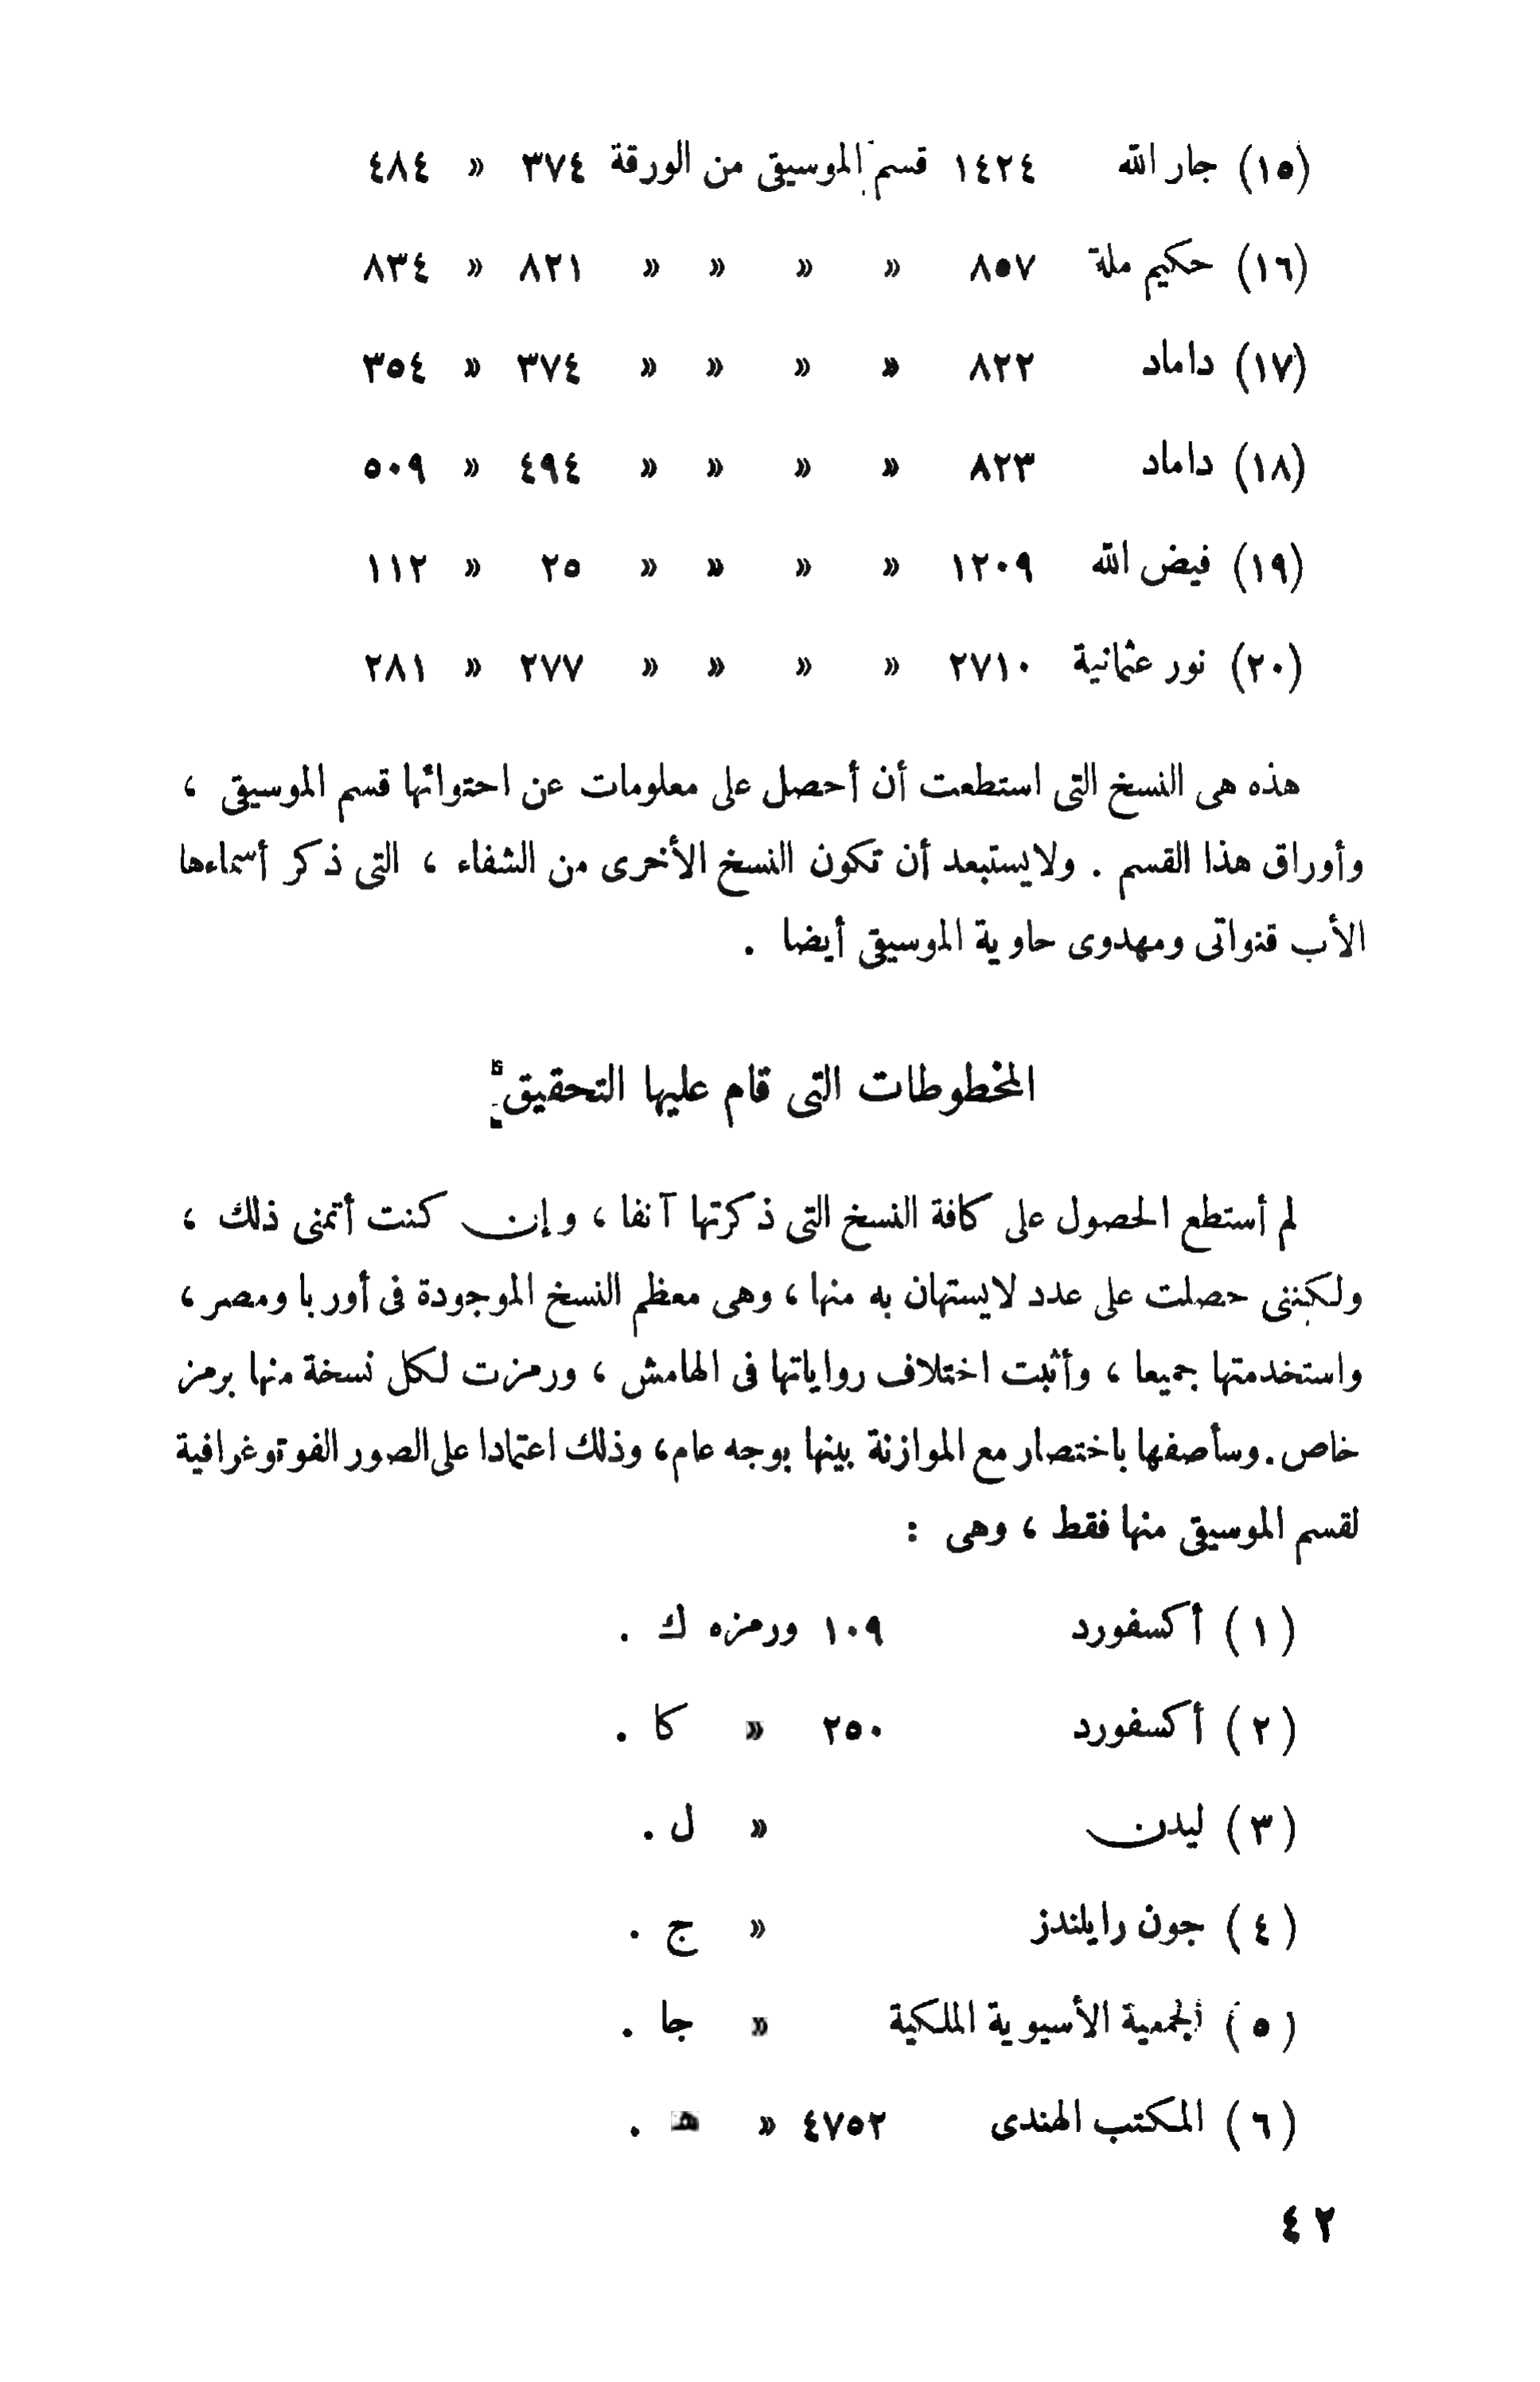 (١٥) جار الله ١٤٢٤ قسم الموسيقى من الورقة ٣٧٤ « ٤٨٤
(١٦) حكيم ملة ٨٥٧ « « « « ٨٢١ « ٨٣٤
(١٧) داماد ٨٢٢ « « « « ٣٧٤ « ٣٥٤
(١٨) داماد ٨٢٣ « « « « ٤٩٤ « ٥٠٩
(١٩) فيض الله ١٢٠٩ « « « « ٢٥ « ١١٢
(٢٠) نور عثمانية ٢٧١٠ « « « « ٢٧٧ « ٢٨١
هذه هى النسخ التى استطعت أن أحصل على معلومات عن احتوائها قسم الموسيقى ،
وأوراق هذا القسم . ولا يستبعد أن تكون النسخ الأخرى من الشفاء ، التى ذكر أسماءها
الأب قنواتى ومهدوى حاوية الموسيقى أيضا .
المخطوطات التى قام عليها التحقيق
لم أستطع الحصول على كافة النسخ التى ذكرتها آنفا ، وإن كنت أتمنى ذلك ،
ولكننى حصلت على عدد لا يستهان به منها ، وهى معظم النسخ الموجودة فى أوربا ومصر ،
واستخدمتها جميعا ، وأثبت اختلاف رواياتها فى الهامش ، ورمزت لكل نسخة منها برمز
خاص . وسأصفها باختصار مع الموازنة بينها بوجه عام ، وذلك اعتمادا على الصور الفوتوغرافية
لقسم الموسيقى منها فقط ، وهى :
(١) أكسفورد ١٠٩ ورمزه ك .
(٢) أكسفورد ٢٥٠ « كا .
(٣) ليدن « ل .
(٤) جون رايلندز « ج .
(٥) الجمعية الأسيوية الملكية « جا .
(٦) المكتب الهندى ٤٧٥٢ « هـ .
٤٢